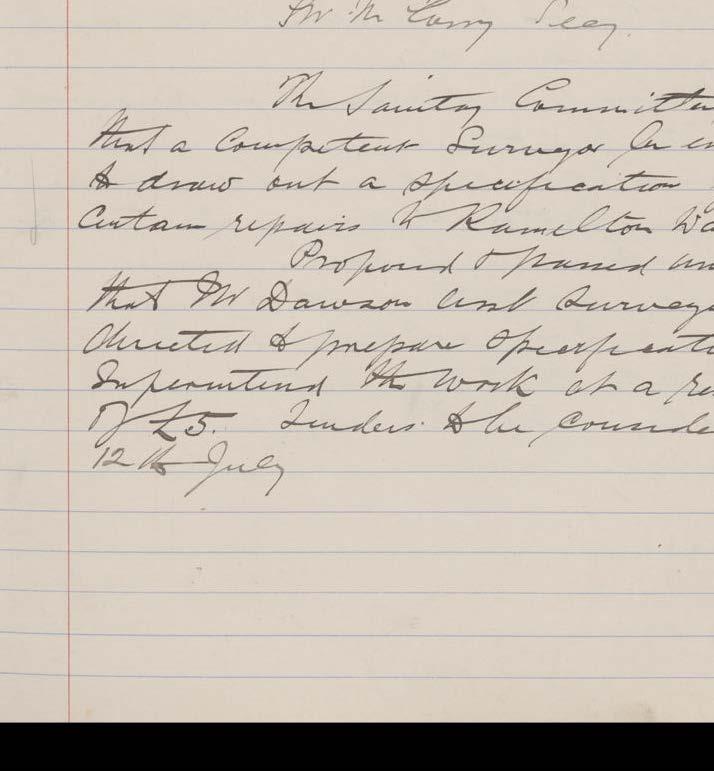 The Sanitary Committee
that a competent Surveyor be
to draw out a specification
certain repairs to Ramelton Wa
Proposed & passed
that Mr Dawson asst Surveyo
directed to prepare specificati
Superintend the work at a re
of £5. Tenders to be conside
12th July